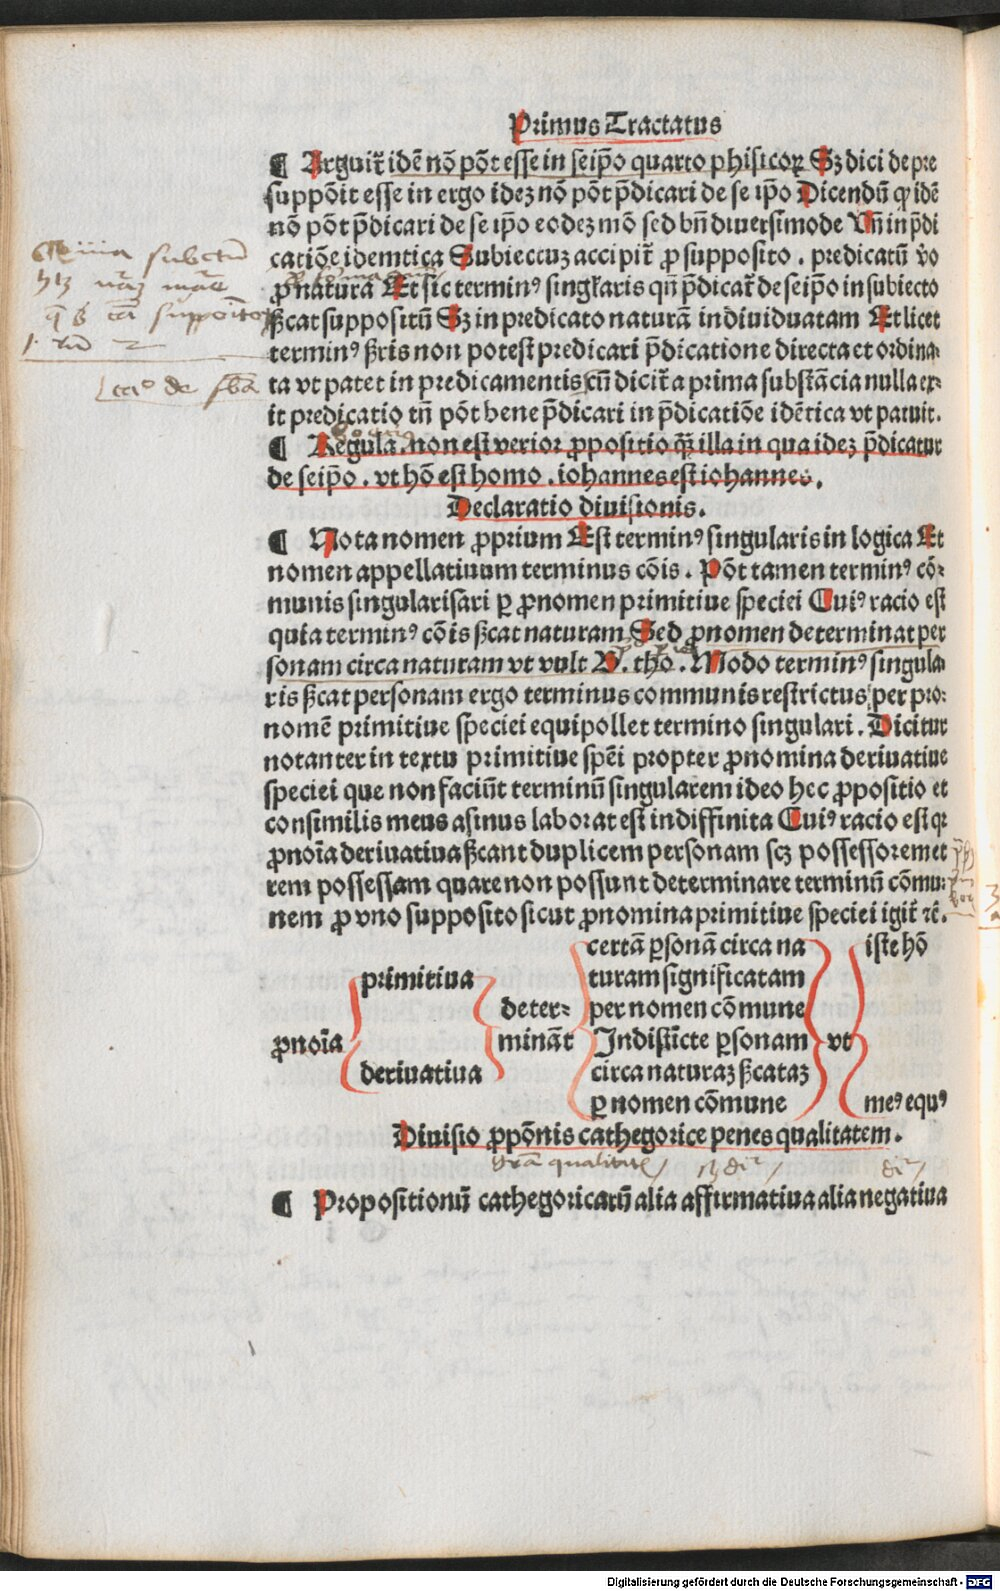 Primus Tractatus
¶ Arguit̃ idē nō pōt esse in seip̄o quarto phisicoꝝ Sꝫ dici de pre
suppōit esse in ergo idez nō pōt p̄dicari de se ip̄o Dicendū ꝙ idē
nō pōt p̄dicari de se ip̄o eodez mō sed bn̄ diuersimode Vn̄ in p̄di
catiōe idemtica Subiectuz accipit̃ ꝓ supposito . predicatū v̄o
ꝓ natura Et sic terminꝰ singĺaris qn̄ p̄dicat̃ de seip̄o in subiecto
ẞcat suppositū Sꝫ in predicato naturā indiuiduatam Et licet
terminꝰ ẞris non potest predicari p̄dicatione directa et ordina⸗
ta vt patet in predicamentis cū dicit̃ a prima substācia nulla ex⸗
it predicatio tn̄ pōt bene p̄dicari in p̄dicatiōe idētica vt patuit.
¶ Regula . non est verior ꝓpositio qꝫ illa in qua idez p̄dicatur
de seip̄o . vt hō est homo . iohannes est iohannes .
Declaratio diuisionis .
¶ Nota nomen ꝓprium Est terminꝰ singularis in logica Et
nomen appellatiuum terminus cōis . Pōt tamen terminꝰ cō⸗
munis singularisari ꝑ ꝓnomen primitiue speciei Cuiꝰ racio est
quia terminꝰ cōis ẞcat naturam Sed ꝓnomen determinat per
sonam circa naturam vt vult B. tho . Modo terminꝰ singula⸗
ris ẞcat personam ergo terminus communis restrictus per pro⸗
nomē primitiue speciei equipollet termino singulari . Dicitur
notanter in textu primitiue spēi propter ꝓnomina deriuatiue
speciei que non faciūt terminū singularem ideo hec ꝓpositio et
consimilis meus asinus laborat est indiffinita Cuiꝰ racio est qꝛ
ꝓnoīa deriuatiua ẞcant duplicem personam scꝫ possessorem et
rem possessam quare non possunt determinare terminū cōmu⸗
nem ꝓ vno supposito sicut ꝓnomina primitiue speciei igit̃ rē.
certā ꝑsonā circa na iste hō
primitiua turam significatam
deter⸗ per nomen cōmune
ꝓnoīa mināt Indistīcte ꝑsonam vt
deriuatiua circa naturaz ẞcataz
ꝑ nomen cōmune meꝰ equꝰ
Diuisio ꝓpōnis cathegorice penes qualitatem .
¶ Propositionū cathegoricarū alia affirmatiua alia negatiua
Digitalisierung gefördert durch die Deutsche Forschungsgemeinschaft - DFG